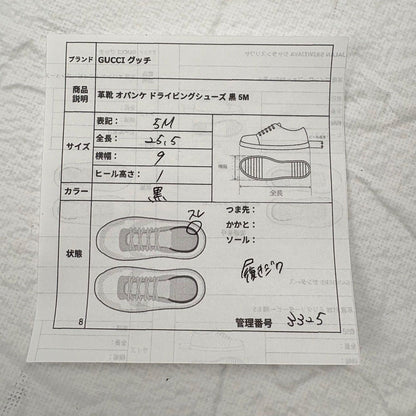 ブランド GUCCI グッチ
商品説明 革靴 オパンケ ドライビングシューズ 黒 5M
サイズ
表記： 5M
全長： 25,5
横幅： 9
ヒール高さ： 1
横幅
全長
カラー 黒
状態
スレ
つま先：
かかと：
ソール：
履きジワ
8
管理番号 3325